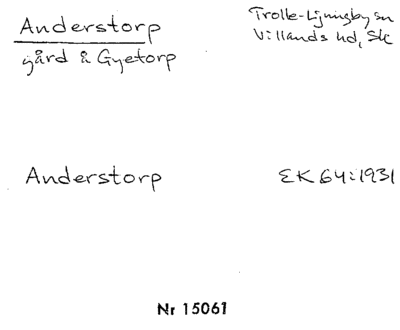 Anderstorp
Trolle-Ljungby sn
Villands hd, Sk
gård å Gyetorp
Anderstorp
EK 64:1931
Nr 15061